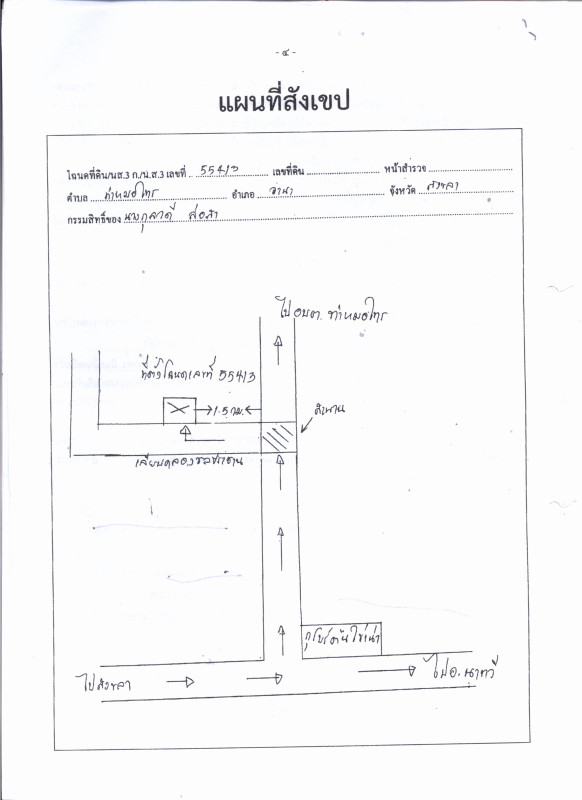 - ๔ -
แผนที่สังเขป
โฉนดที่ดิน/นส.3 ก./น.ส.3 เลขที่ 55413 เลขที่ดิน หน้าสำรวจ
ตำบล ท่าหมอไทร อำเภอ จะนะ จังหวัด สงขลา
กรรมสิทธิ์ของ
ไป อบต. ท่าหมอไทร
ที่ตั้งโฉนดเลขที่ 55413
1.5 กม.
สะพาน
เลียบคลองชลประทาน
ไปสงขลา
ไป อ. นาทวี